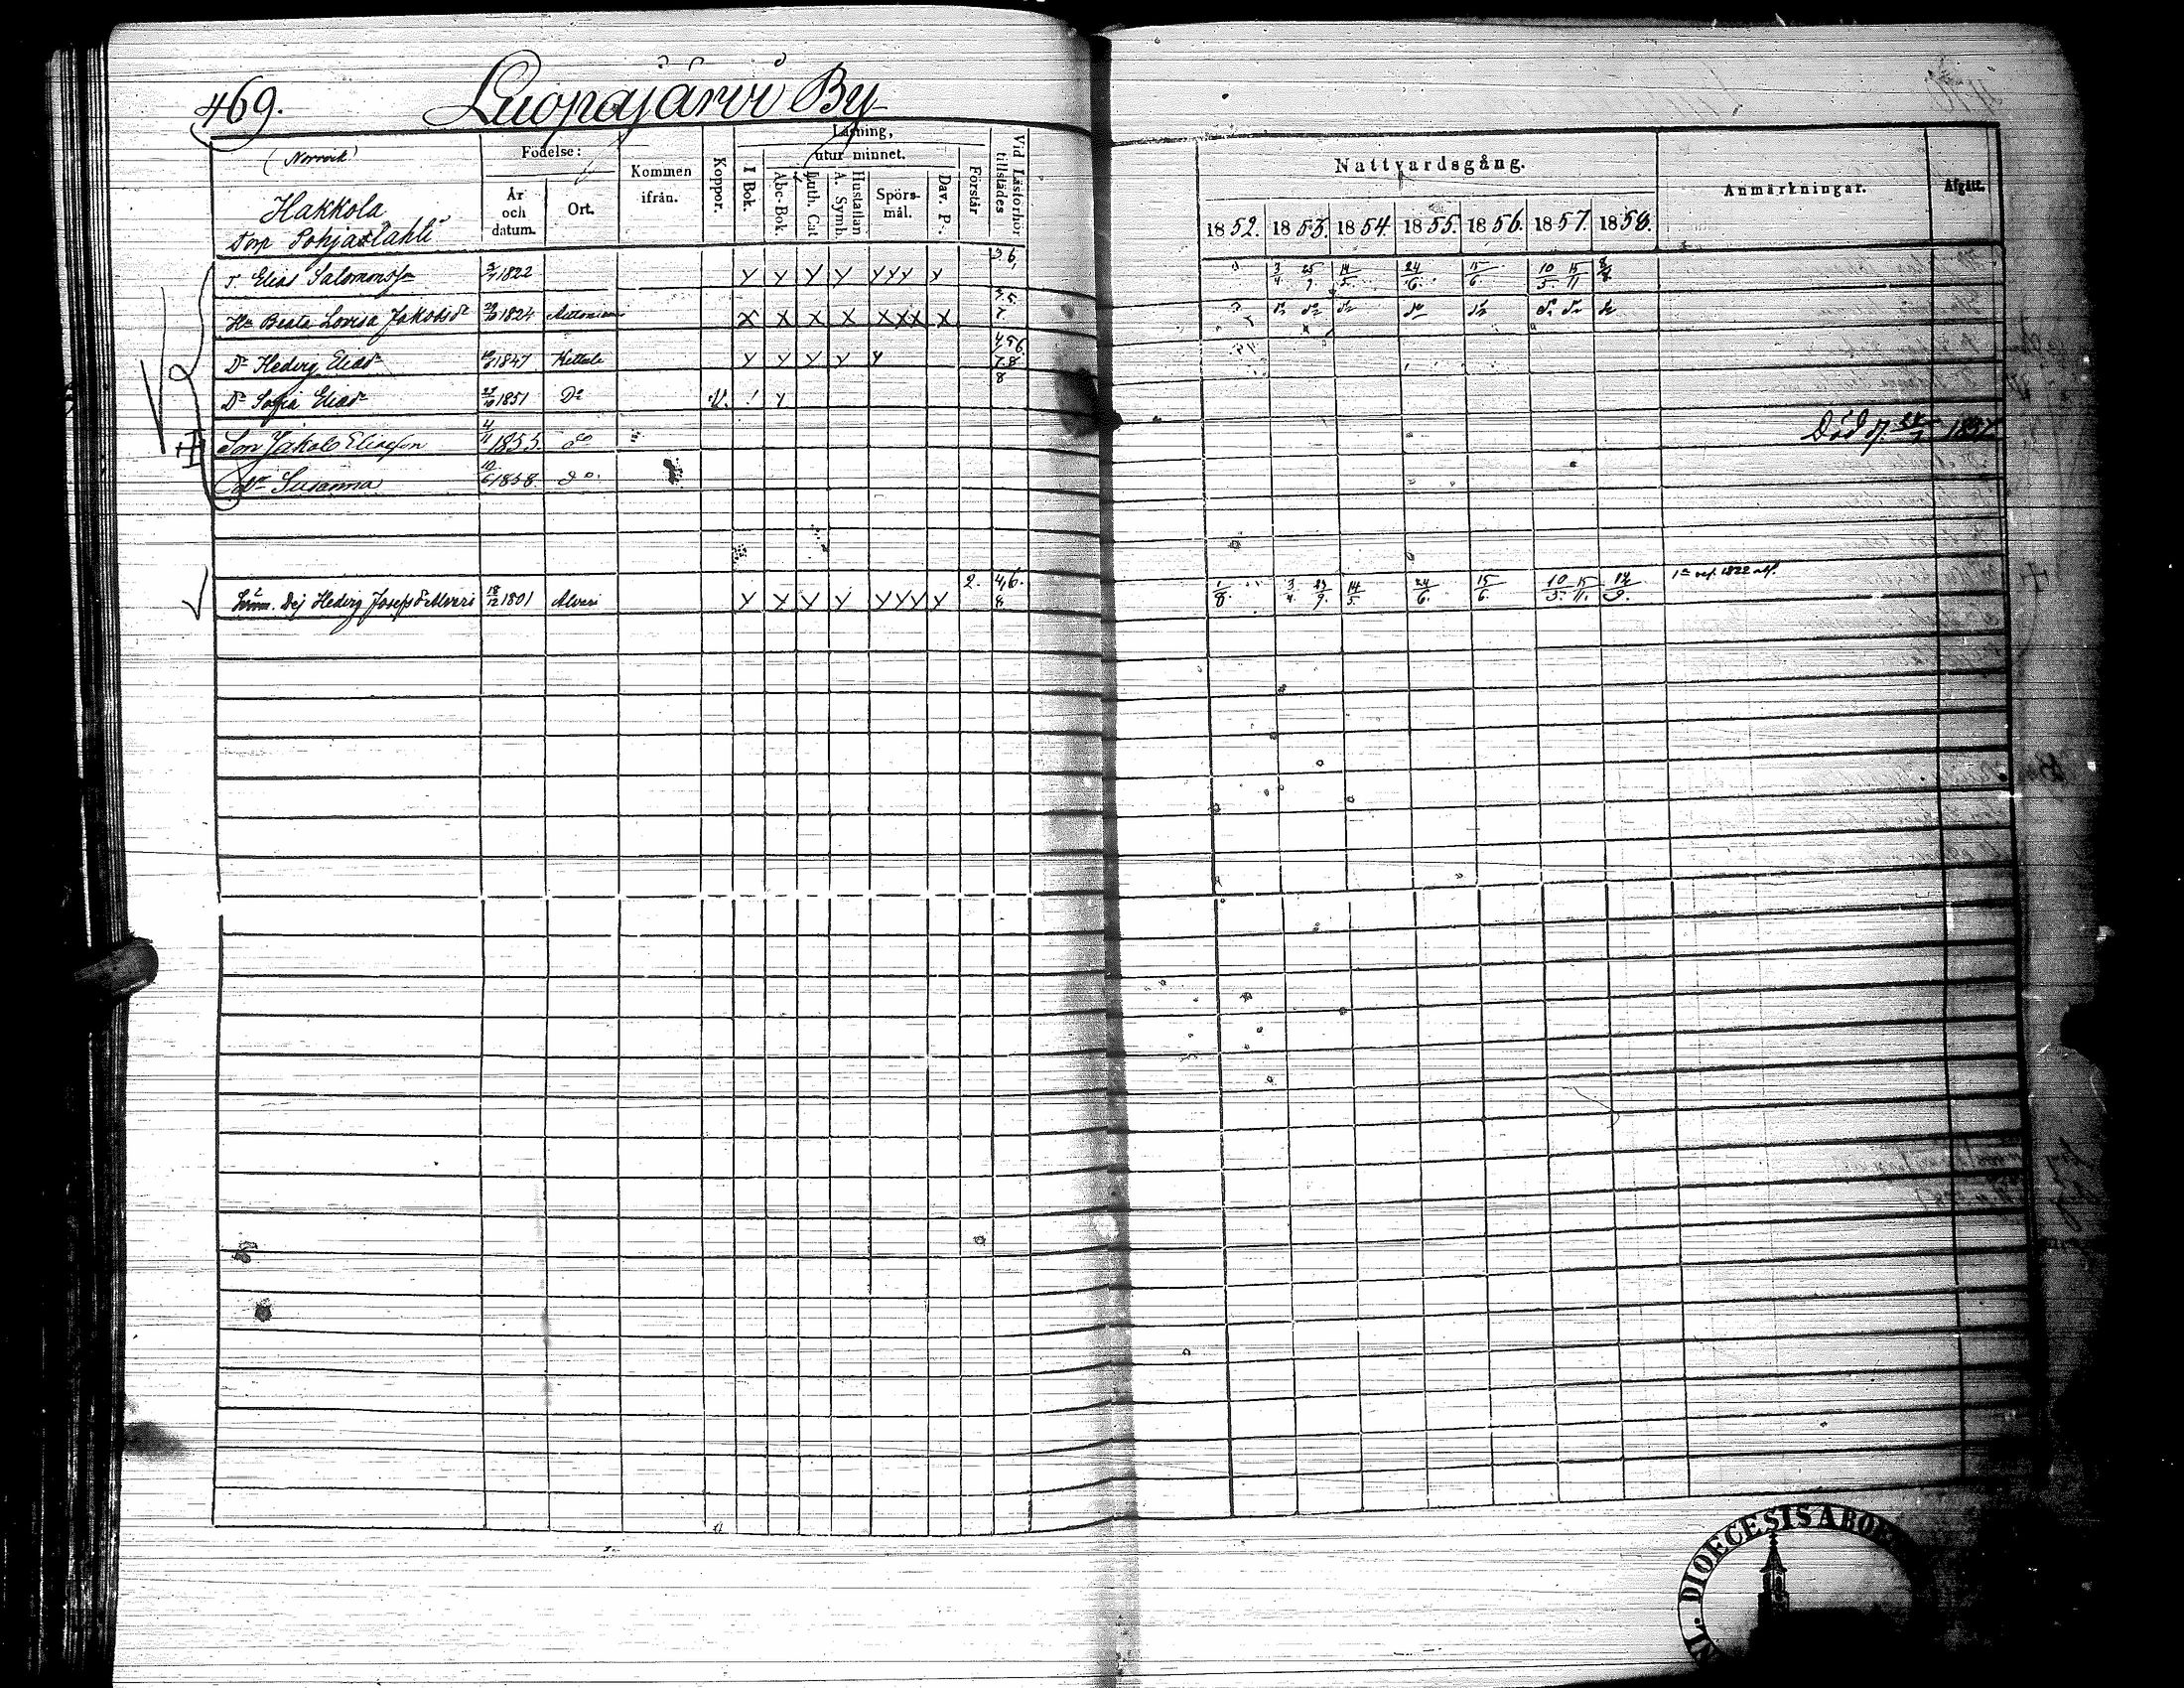 469. Luopajärvi By
(Norrvik)
Hakkola
Torp Pohjaslahti
Födelse:
År och datum.
Ort.
Kommen ifrån.
Koppor.
Läsning,
utur minnet.
I Bok.
Abc-Bok.
Luth. Cat.
Hustaflan A. Symb.
Spörsmål.
Dav. Ps.
Förstår
Vid Läsförhör tillstädes
Nattvardsgång.
1852. 1853. 1854 1855. 1856. 1857. 1858.
Anmärkningar.
Afgått.
T. Elias Salomonss 3/7 1822 y y y y yyy y 3.6. 3/4 25/9 14/5. 24/6. 15/6 10/5 15/11
Hu Beata Lovisa Jakobsdr 1824 x x x x xxx x 3.5. 7. do do do do do do do do
Dr Hedvig Eliasdr 1847 y y y y y 4.5.6. 7.8
Dr Sofia Eliasdr 27/10 1851 Do V. ! y 8
Son Jakob Eliasson 4/11 1855. do Död d. 1857
Dr Susanna 10/6 1858. do
Dej Hedvig Josefsdr Alveri 18/12 1801 Alveri y y y y yyy y 2. 4.6. 8 1/8. 3/4. 14/5. 24/6. 15/6. 10/5. 15/11. 1822
DIOECESIS ABOE